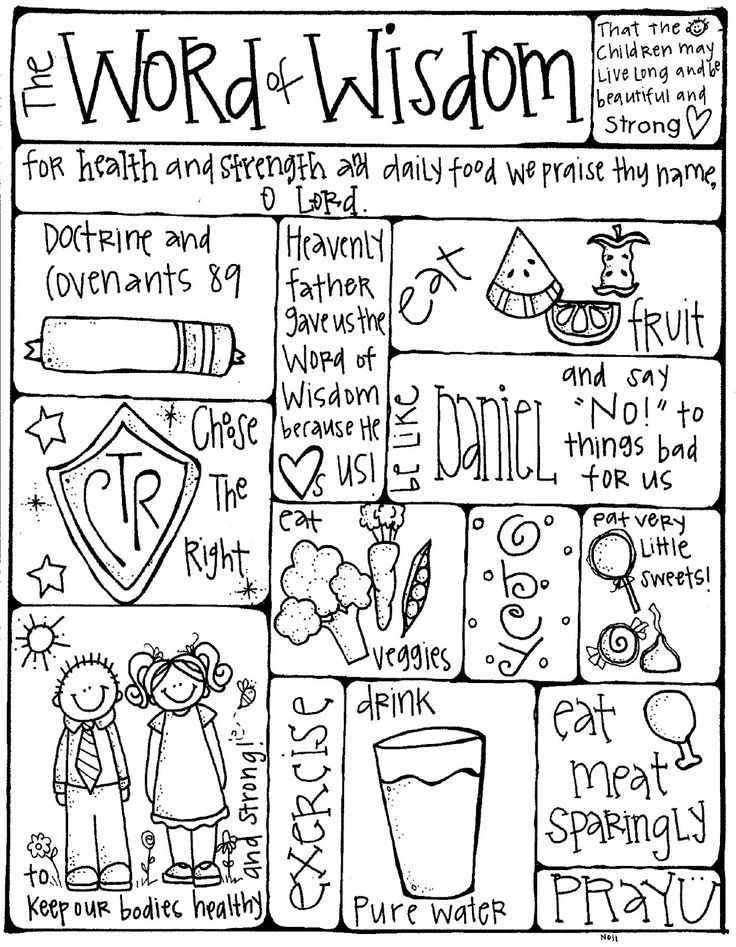 The Word of Wisdom
That the
Children may
Live Long and be
beautiful and
Strong
for health and strength and daily food we praise thy name,
O Lord.
Doctrine and
Covenants 89
Heavenly
father
gave us the
Word of
Wisdom
because He
♡s us!
eat
fruit
be like Daniel
and say
"No!" to
things bad
for us
CTR
Choose
The
Right
eat
veggies
obey
eat very
Little
sweets!
to
Keep our bodies healthy
and strong!
exercise
drink
Pure water
eat
meat
sparingly
Pray